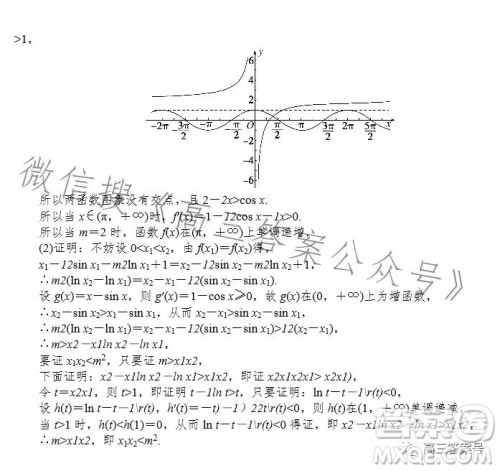 >1，
y
6
4
2
-2π 3π/2 -π π/2 O π/2 π 3π/2 2π 5π/2 x
-4
-6
所以两函数图象没有交点，且 2－2x>cos x.
所以当 x∈(π，＋∞)时，f′(x)＝1－12cos x－1x>0.
所以当 m＝2 时，函数 f(x)在(π，＋∞)上单调递增，
(2)证明：不妨设 0<x₁<x₂，由 f(x₁)＝f(x₂)得，
x₁－12sin x₁－m2ln x₁＋1＝x₂－12sin x₂－m2ln x₂＋1，
∴m2(ln x₂－ln x₁)＝x₂－x₁－12(sin x₂－sin x₁).
设 g(x)＝x－sin x，则 g′(x)＝1－cos x⩾0，故 g(x)在(0，＋∞)上为增函数，
∴x₂－sin x₂>x₁－sin x₁，从而 x₂－x₁>sin x₂－sin x₁，
∴m2(ln x₂－ln x₁)＝x₂－x₁－12(sin x₂－sin x₁)>12(x₂－x₁)，
∴m>x2－x1ln x2－ln x1，
要证 x₁x₂<m²，只要证 m>x1x2，
下面证明：x2－x1ln x2－ln x1>x1x2，即证 x2x1x2x1> x2x1)，
令 t＝x2x1，则 t>1，即证明 t－1ln t>t，只要证明：ln t－t－1\r(t)<0，
设 h(t)＝ln t－t－1\r(t)，h′(t)＝－t)－1）22t\r(t)<0，则 h(t)在(1，＋∞)单调递减，
当 t>1 时，h(t)<h(1)＝0，从而 ln t－t－1\r(t)<0 得证，即 x2－x1ln x2－ln x1>x1x2，
∴m>x1x2，即 x₁x₂<m².
微信搜《高三答案公众号》
高三答案号